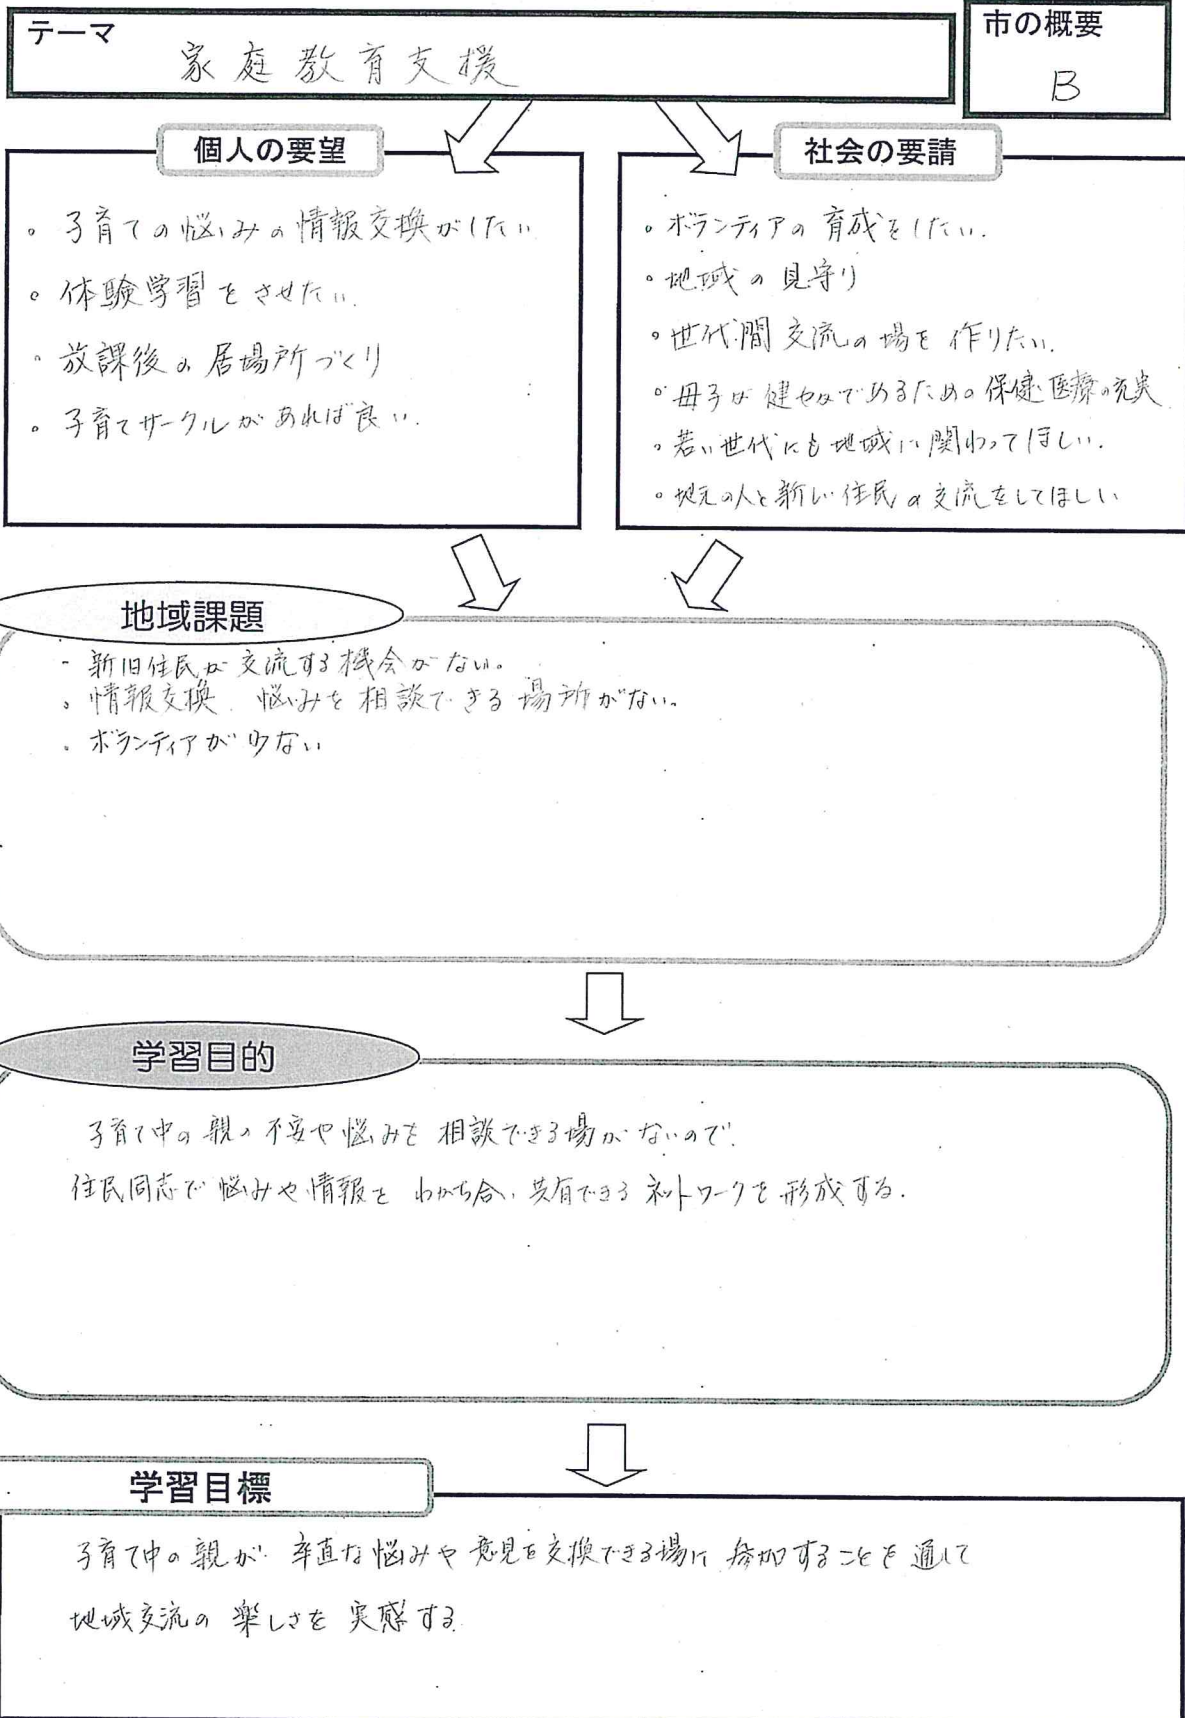 テーマ
家庭教育支援
市の概要
B
個人の要望
。子育ての悩みの情報交換がしたい
。体験学習をさせたい.
・放課後の居場所づくり
。子育てサークルがあれば良い.
社会の要請
。ボランティアの育成をしたい.
。地域の見守り
。世代間交流の場を作りたい.
。母子が健やかであるための保健・医療の充実
。若い世代にも地域に関わってほしい.
。地元の人と新しい住民の交流をしてほしい
地域課題
- 新旧住民が交流する機会がない。
。情報交換、悩みを相談できる場所がない。
。ボランティアが少ない
学習目的
子育て中の親の不安や悩みを相談できる場がないので.
住民同志で悩みや情報をわかち合い共有できるネットワークを形成する.
学習目標
子育て中の親が率直な悩みや意見を交換できる場に参加することを通して
地域交流の楽しさを実感する.